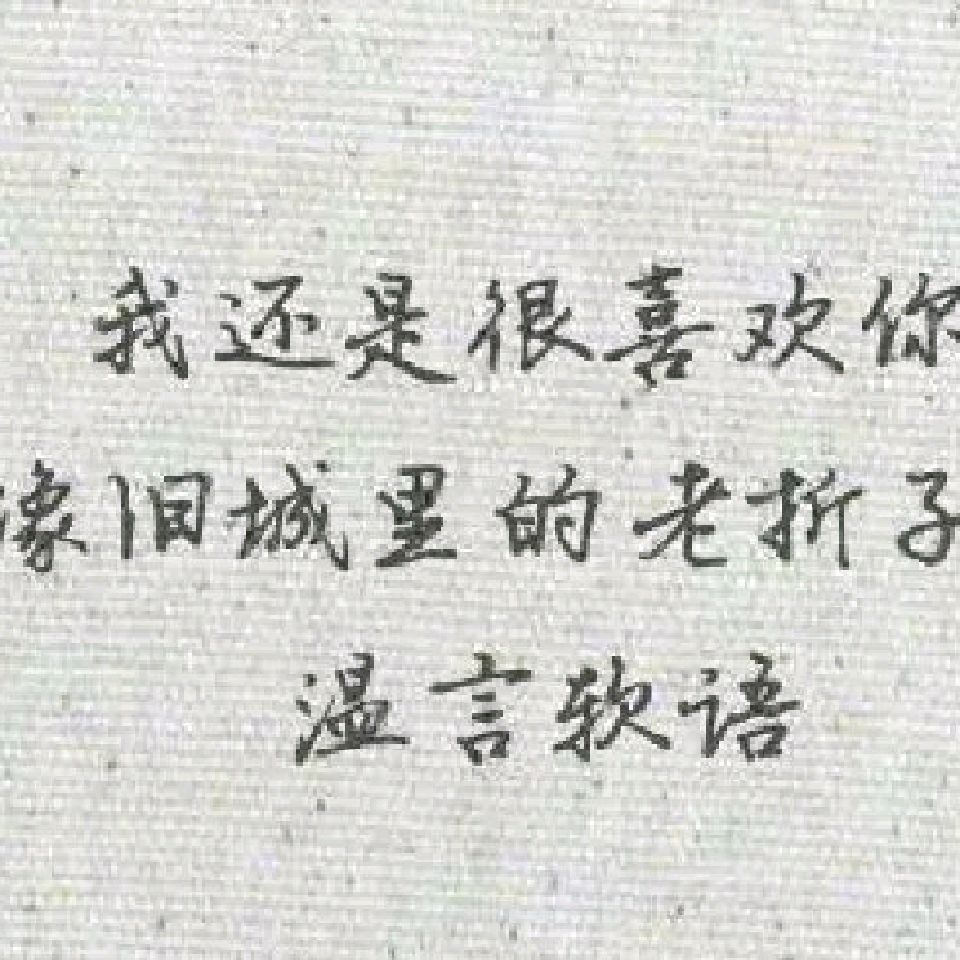 我还是很喜欢你
像旧城里的老折子
温言软语